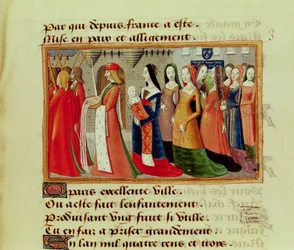 Par qui depuis france a este
Mise en paix et alligement.
3
Paris excellente ville.
Ou a este fait lenfantement.
Produisant ung fruit si utille.
Tu en fais a priser grandement.
En lan mil quatre cens et trois.